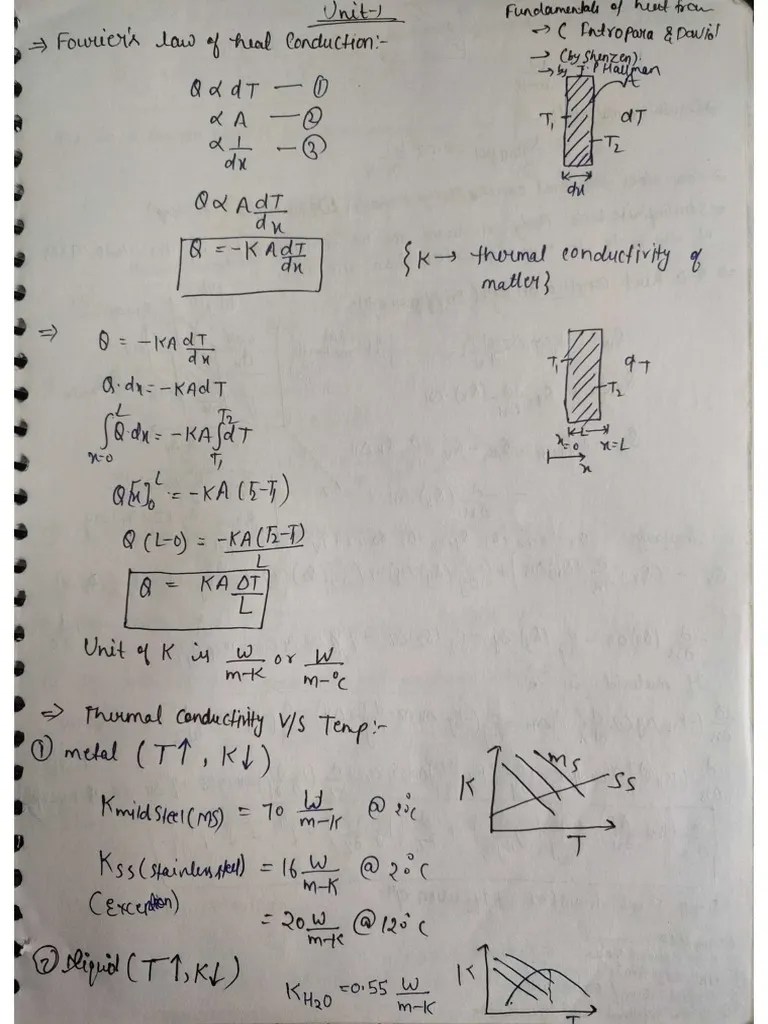 Unit-1
Fundamentals of heat tran
→ C Intropara & David
→ (by Shenzen)
→ by J.P Hallman
⇒ Fourier's law of heat Conduction:-
Q ∝ dT — ①
∝ A — ②
∝ 1/dx — ③
A
T1 dT
T2
dx
Q ∝ A dT/dx
Q = -KA dT/dx
{K → thermal conductivity of
matter}
⇒ Q = -KA dT/dx
Q·dx = -KAdT
∫_{x=0}^{L} Q·dx = -KA ∫_{T1}^{T2} dT
Q[x]_0^L = -KA (T2-T1)
Q (L-0) = -KA(T2-T1)/L
Q = KA ΔT/L
T1 dT
T2
L
x=0 x=L
x
Unit of K is W/m-K or W/m-°C
⇒ Thermal Conductivity V/S Temp:-
① metal (T↑, K↓)
K mild Steel (MS) = 70 W/m-K @ 20°C
K SS (stainless steel) = 16 W/m-K @ 20°C
(Exception) = 20 W/m-K @ 120°C
K MS SS
T
② liquid (T↑, K↓)
K_H2O = 0.55 W/m-K
K
T